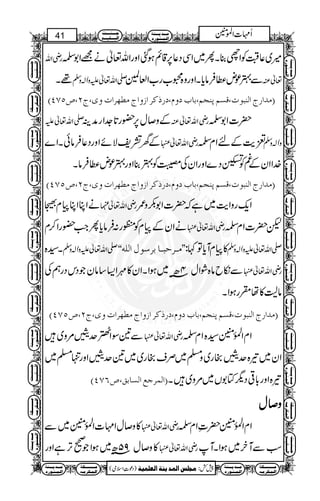 اُمہات المؤمنین
41
میری عاقبت کو اچھی بنا۔ پھر میں اسی دعا پر قائم ہوگئی اور اللہ تعالیٰ نے ابو سلمہ رضی اللہ
تعالیٰ عنہ سے بہتر عوض عطا فرمایا۔ اور وہ محبوب رب العالمین صلی اللہ تعالیٰ علیہ واٰلہ وسلم تھے۔
(مدارج النبوت،قسم پنجم،باب دوم،درذکر ازواج مطهرات وی،ج۲،ص۴۷۵)
حضرت ابو سلمہ رضی اللہ تعالیٰ عنہ کے وصال پر حضور تاجدارِ مدینہ صلی اللہ تعالیٰ علیہ
واٰلہ وسلم تعزیت کے لئے ام سلمہ رضی اللہ تعالیٰ عنہا کے گھر تشریف لائے اور دعا فرمائی۔ اے
خدا ان کے غم کو تسکین دے اور ان کی مصیبت کو بہتر بنا اور بہتر عوض عطا فرما۔
(مدارج النبوت،قسم پنجم،باب دوم،درذکر ازواج مطهرات وی،ج۲،ص۴۷۵)
ایک روایت میں ہے کہ حضرت ابوبکر و عمر رضی اللہ تعالیٰ عنہما نے اپنا اپنا پیام بھیجا
لیکن حضرت ام سلمہ رضی اللہ تعالیٰ عنہا نے ان کے پیام کو منظور نہ فرمایا پھر جب حضور اکرم
صلی اللہ تعالیٰ علیہ واٰلہ وسلم کا پیام آیا تو کہا: ”مرحبا برسول اللہ“ صلی اللہ تعالیٰ علیہ واٰلہ وسلم۔ سیدہ
رضی اللہ تعالیٰ عنہا سے نکاح ماہ شوال ۴ھ میں ہوا۔ ان کا مہر ایسا سامان جو دس درہم کی
مالیت کا تھا مقرر ہوا۔
(مدارج النبوت،قسم پنجم،باب دوم،درذکر ازواج مطهرات وی،ج۲،ص۴۷۵)
ام المؤمنین سیدہ ام سلمہ رضی اللہ تعالیٰ عنہا سے تین سو اٹھتر حدیثیں مروی ہیں
ان میں تیرہ حدیثیں بخاری و مسلم میں صرف بخاری میں تین حدیثیں اور تنہا مسلم میں
تیرہ اور باقی دیگر کتابوں میں مروی ہیں۔ (المرجع السابق،ص۴۷۶)
وصال
ام المؤمنین حضرت ام سلمہ رضی اللہ تعالیٰ عنہا کا وصال امہات المؤمنین میں سے
سب سے آخر میں ہوا۔ آپ رضی اللہ تعالیٰ عنہا کا وصال ۵۹ھ میں ہوا جو صحیح تر ہے اور
پیش کش: مجلس المدینۃ العلمیۃ (دعوتِ اسلامی)